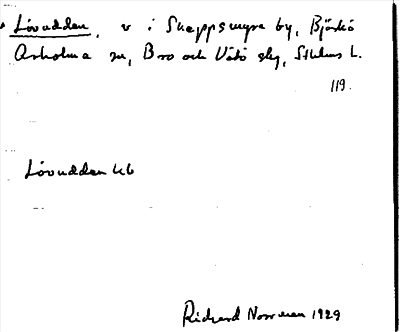 Lövudden, v i Skeppsmyra by, Björkö
Arholma sn, Bro och Vätö skg, Sthlms l.
119.
Lövudden kb
Richard Norrman 1929